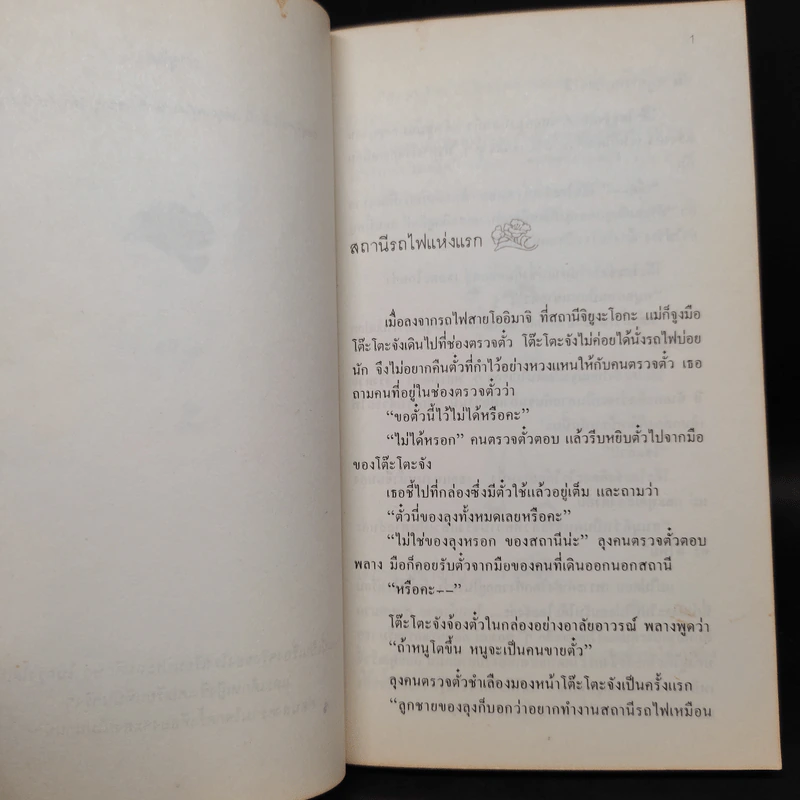 1
สถานีรถไฟแห่งแรก
เมื่อลงจากรถไฟสายโออิมาจิ ที่สถานีจิยูงะโอกะ แม่ก็จูงมือ
โต๊ะโตะจังเดินไปที่ช่องตรวจตั๋ว โต๊ะโตะจังไม่ค่อยได้นั่งรถไฟบ่อย
นัก จึงไม่อยากคืนตั๋วที่กำไว้อย่างหวงแหนให้กับคนตรวจตั๋ว เธอ
ถามคนที่อยู่ในช่องตรวจตั๋วว่า
“ขอตั๋วนี้ไว้ไม่ได้หรือคะ”
“ไม่ได้หรอก” คนตรวจตั๋วตอบ แล้วรีบหยิบตั๋วไปจากมือ
ของโต๊ะโตะจัง
เธอชี้ไปที่กล่องซึ่งมีตั๋วใช้แล้วอยู่เต็ม และถามว่า
“ตั๋วนี่ของลุงทั้งหมดเลยหรือคะ”
“ไม่ใช่ของลุงหรอก ของสถานีน่ะ” ลุงคนตรวจตั๋วตอบ
พลาง มือก็คอยรับตั๋วจากมือของคนที่เดินออกนอกสถานี
“หรือคะ--”
โต๊ะโตะจังจ้องตั๋วในกล่องอย่างอาลัยอาวรณ์ พลางพูดว่า
“ถ้าหนูโตขึ้น หนูจะเป็นคนขายตั๋ว”
ลุงคนตรวจตั๋วชำเลืองมองหน้าโต๊ะโตะจังเป็นครั้งแรก
“ลูกชายของลุงก็บอกว่าอยากทำงานสถานีรถไฟเหมือน